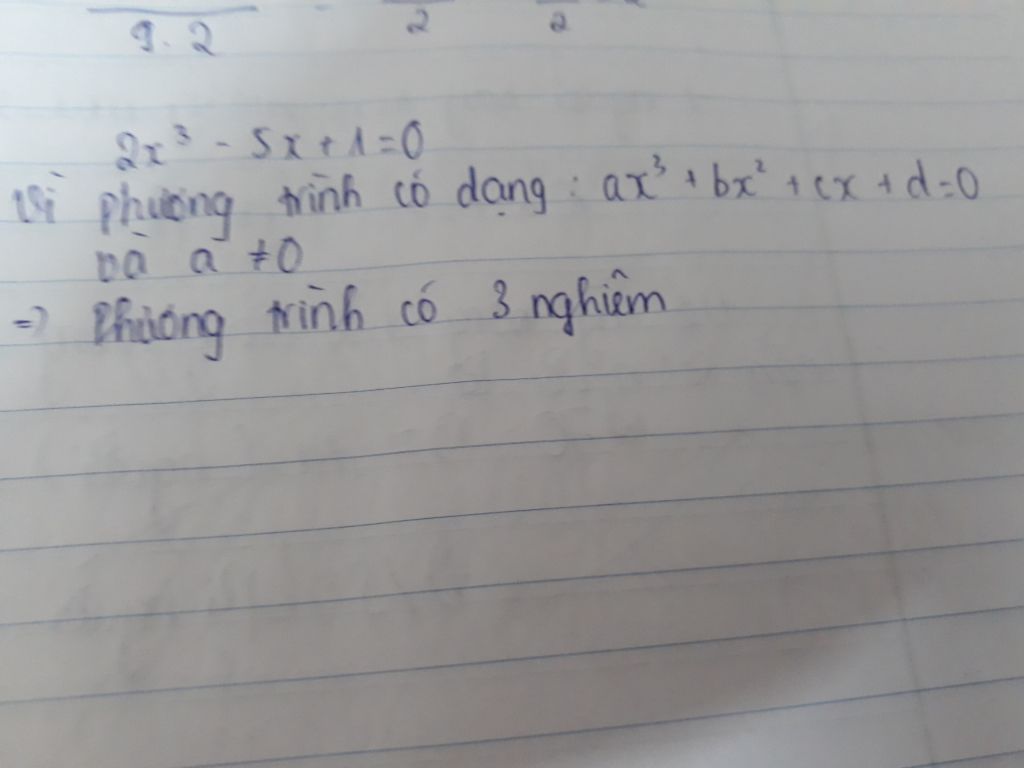 9.2 2 2
2x³ - 5x + 1 = 0
Vì phương trình có dạng: ax³ + bx² + cx + d = 0
và a ≠ 0
=> Phương trình có 3 nghiêm